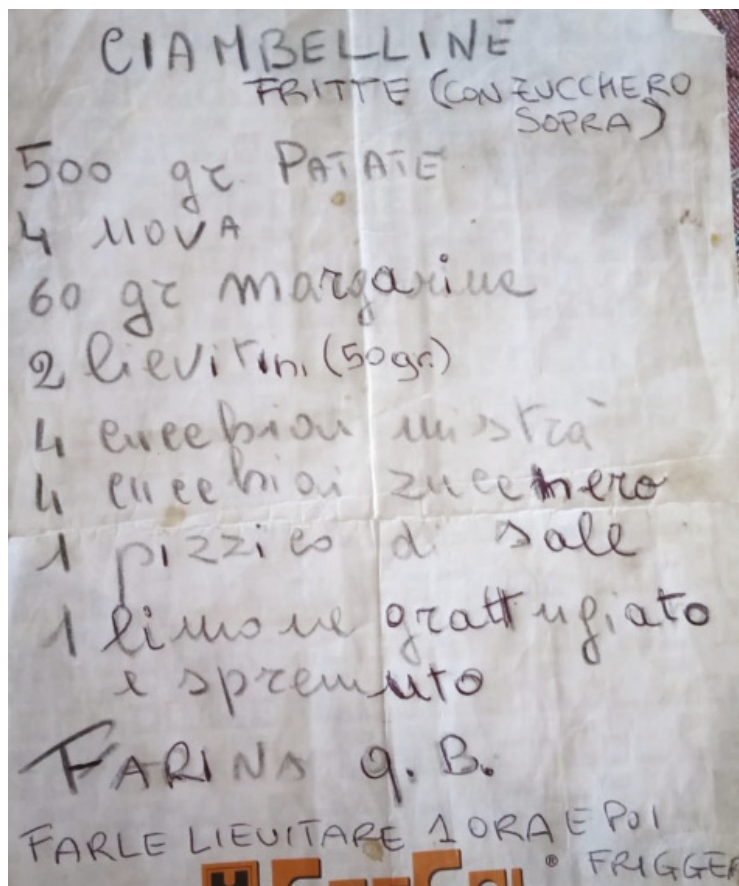 CIAMBELLINE
FRITTE (CON ZUCCHERO
SOPRA)
500 gr. PATATE
4 UOVA
60 gr margarina
2 lievitini (50gr.)
4 cucchiai mistrà
4 cucchiai zucchero
1 pizzico di sale
1 limone grattugiato
e spremuto
FARINA q.B.
FARLE LIEVITARE 1 ORA E POI
FRIGGER